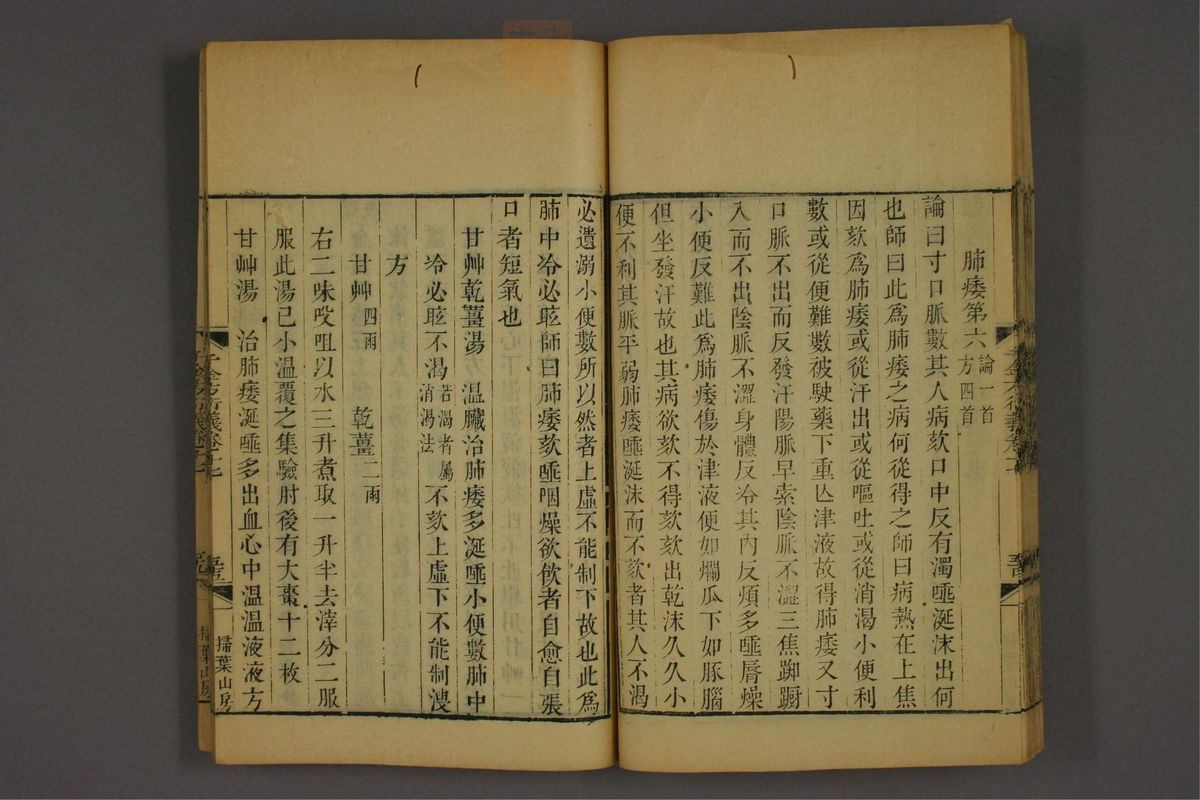 肺痿第六論一首方四首
論曰寸口脈數其人病欬口中反有濁唾涎沫出何
也師曰此爲肺痿之病何從得之師曰病熱在上焦
因欬爲肺痿或從汗出或從嘔吐或從消渴小便利
數或從便難數被駛藥下重亾津液故得肺痿又寸
口脈不出而反發汗陽脈早索陰脈不澀三焦踟躕
入而不出陰脈不澀身體反冷其內反煩多唾脣燥
小便反難此爲肺痿傷於津液便如爛瓜下如豚腦
但坐發汗故也其病欲欬不得欬欬出乾沫久久小
便不利其脈平弱肺痿唾涎沫而不欬者其人不渴
必遺溺小便數所以然者上虛不能制下故也此爲
肺中冷必眩師曰肺痿欬唾咽燥欲飲者自愈自張
口者短氣也
甘艸乾薑湯方 溫臟治肺痿多涎唾小便數肺中
冷必眩不渴若渴者屬消渴法不欬上虛下不能制溲
方
甘艸四兩 乾薑二兩
右二味㕮咀以水三升煮取一升半去滓分二服
服此湯已小溫覆之集驗肘後有大棗十二枚
甘艸湯 治肺痿涎唾多出血心中溫溫液液方
千金方衍義卷十七
掃葉山房